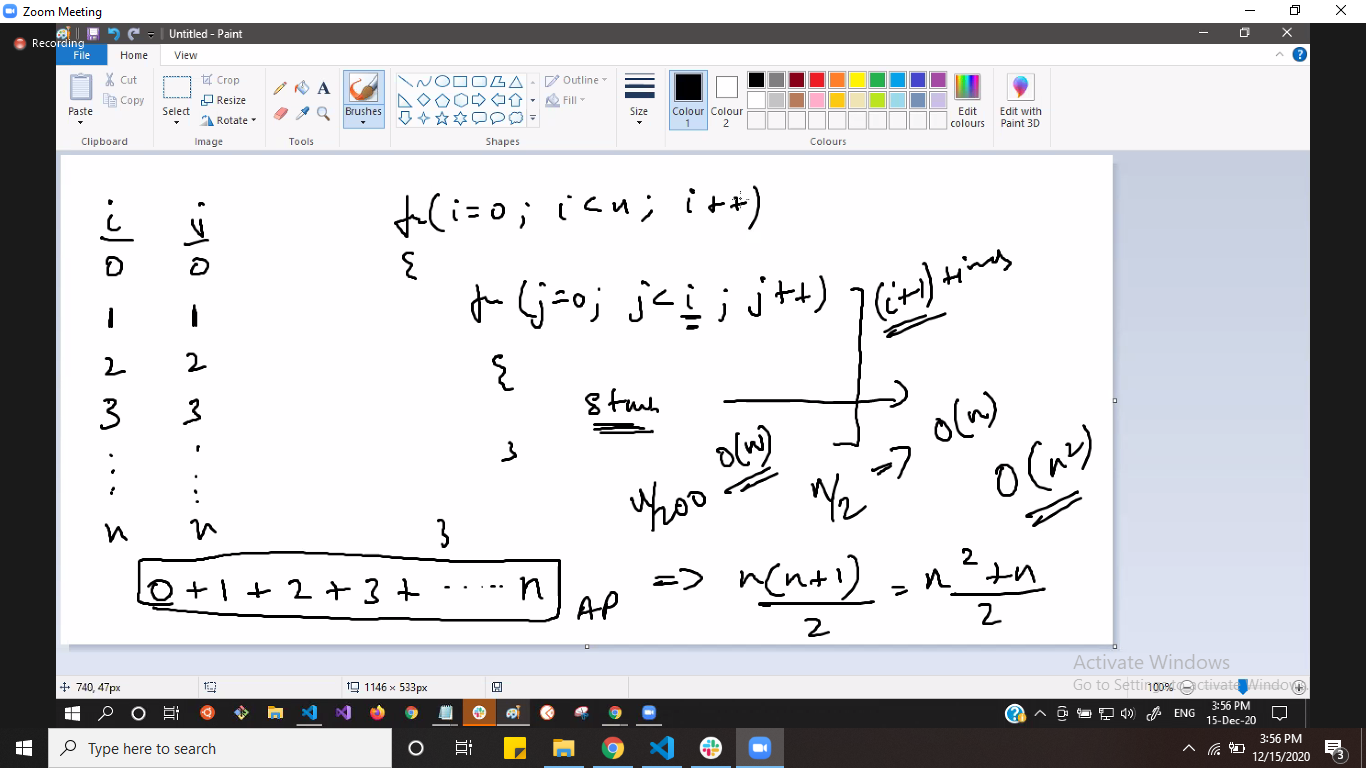 Zoom Meeting
Recording
Untitled - Paint
File Home View
Paste
Cut
Copy
Clipboard
Select
Crop
Resize
Rotate
Image
A
Tools
Brushes
Outline
Fill
Shapes
Size
Colour 1
Colour 2
Edit colours
Colours
Edit with Paint 3D
i j
0 0
1 1
2 2
3 3
n n
for(i=0; i<n; i++)
{
for(j=0; j<i; j++)
(i+1) times
{
O(n)
O(n)
}
n/200
n/2 =>
O(n²)
}
0 + 1 + 2 + 3 + ...... n
AP => n(n+1)/2 = n²+n/2
Activate Windows
Go to Settings to activate Windows.
740, 47px
1146 × 533px
100%
ENG
3:56 PM
15-Dec-20
Type here to search
3:56 PM
12/15/2020
3